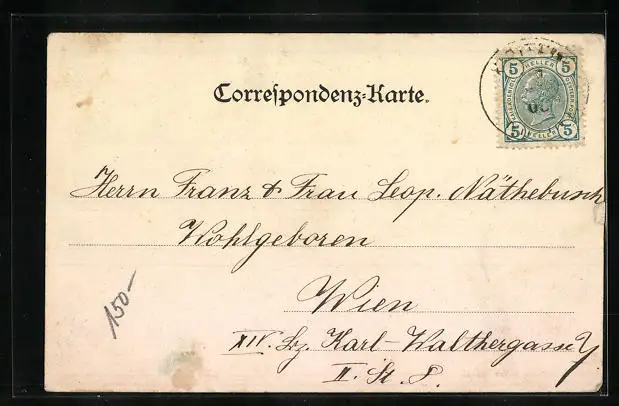 Correſpondenz-Karte.
5 HELLER 5
5 HELLER 5
Herrn Franz & Frau Leop. Näthebusch
Wohlgeboren
Wien
XIV. Bz. Karl-Walthergasse 7
II. St. 8.
150-